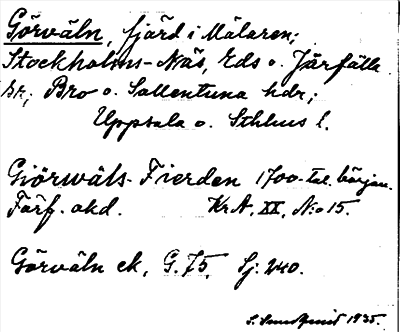 Görväln, fjärd i Mälaren;
Stockholms-Näs, Eds o. Järfälla
sr; Bro o. Sollentuna hdr;
Uppsala o. Sthlms l.
Giörwäls-Fierden 1700-tal. börjau.
Färg. akd. Kr. A, XX, N:o 15.
Görväln ek, G. 75, Sj: 240.
S. 1935.